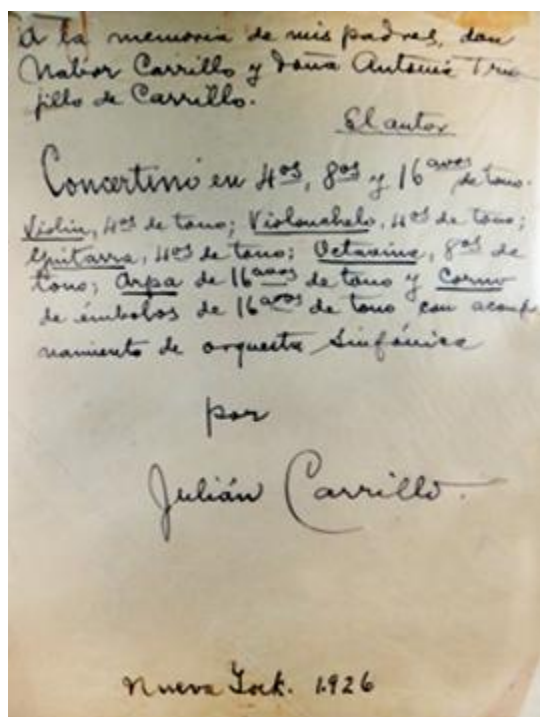 A la memoria de mis padres, don
Nabor Carrillo y doña Antonia Tru
jillo de Carrillo.
El autor
Concertino en 4os, 8os y 16avos de tono.
Violin, 4os de tono; Violonchelo, 4os de tono;
Guitarra, 4os de tono; Octavina, 8os de
tono; Arpa de 16avos de tono y Corno
de émbolos de 16avos de tono con acompa
namiento de orquesta Sinfónica
por
Julián Carrillo.
Nueva York. 1926